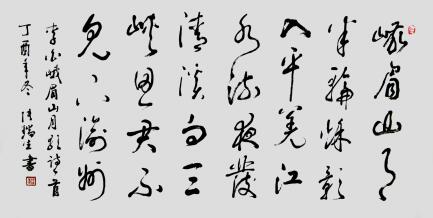 峨眉山月
半輪秋影
入平羌江
水流夜發
清溪向三
峽思君不
見下渝州
李白峨眉山月歌詩一首
丁酉年冬 書